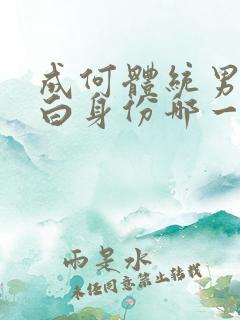 成何體統男
白身份那一
雨是水
未经同意禁止转载